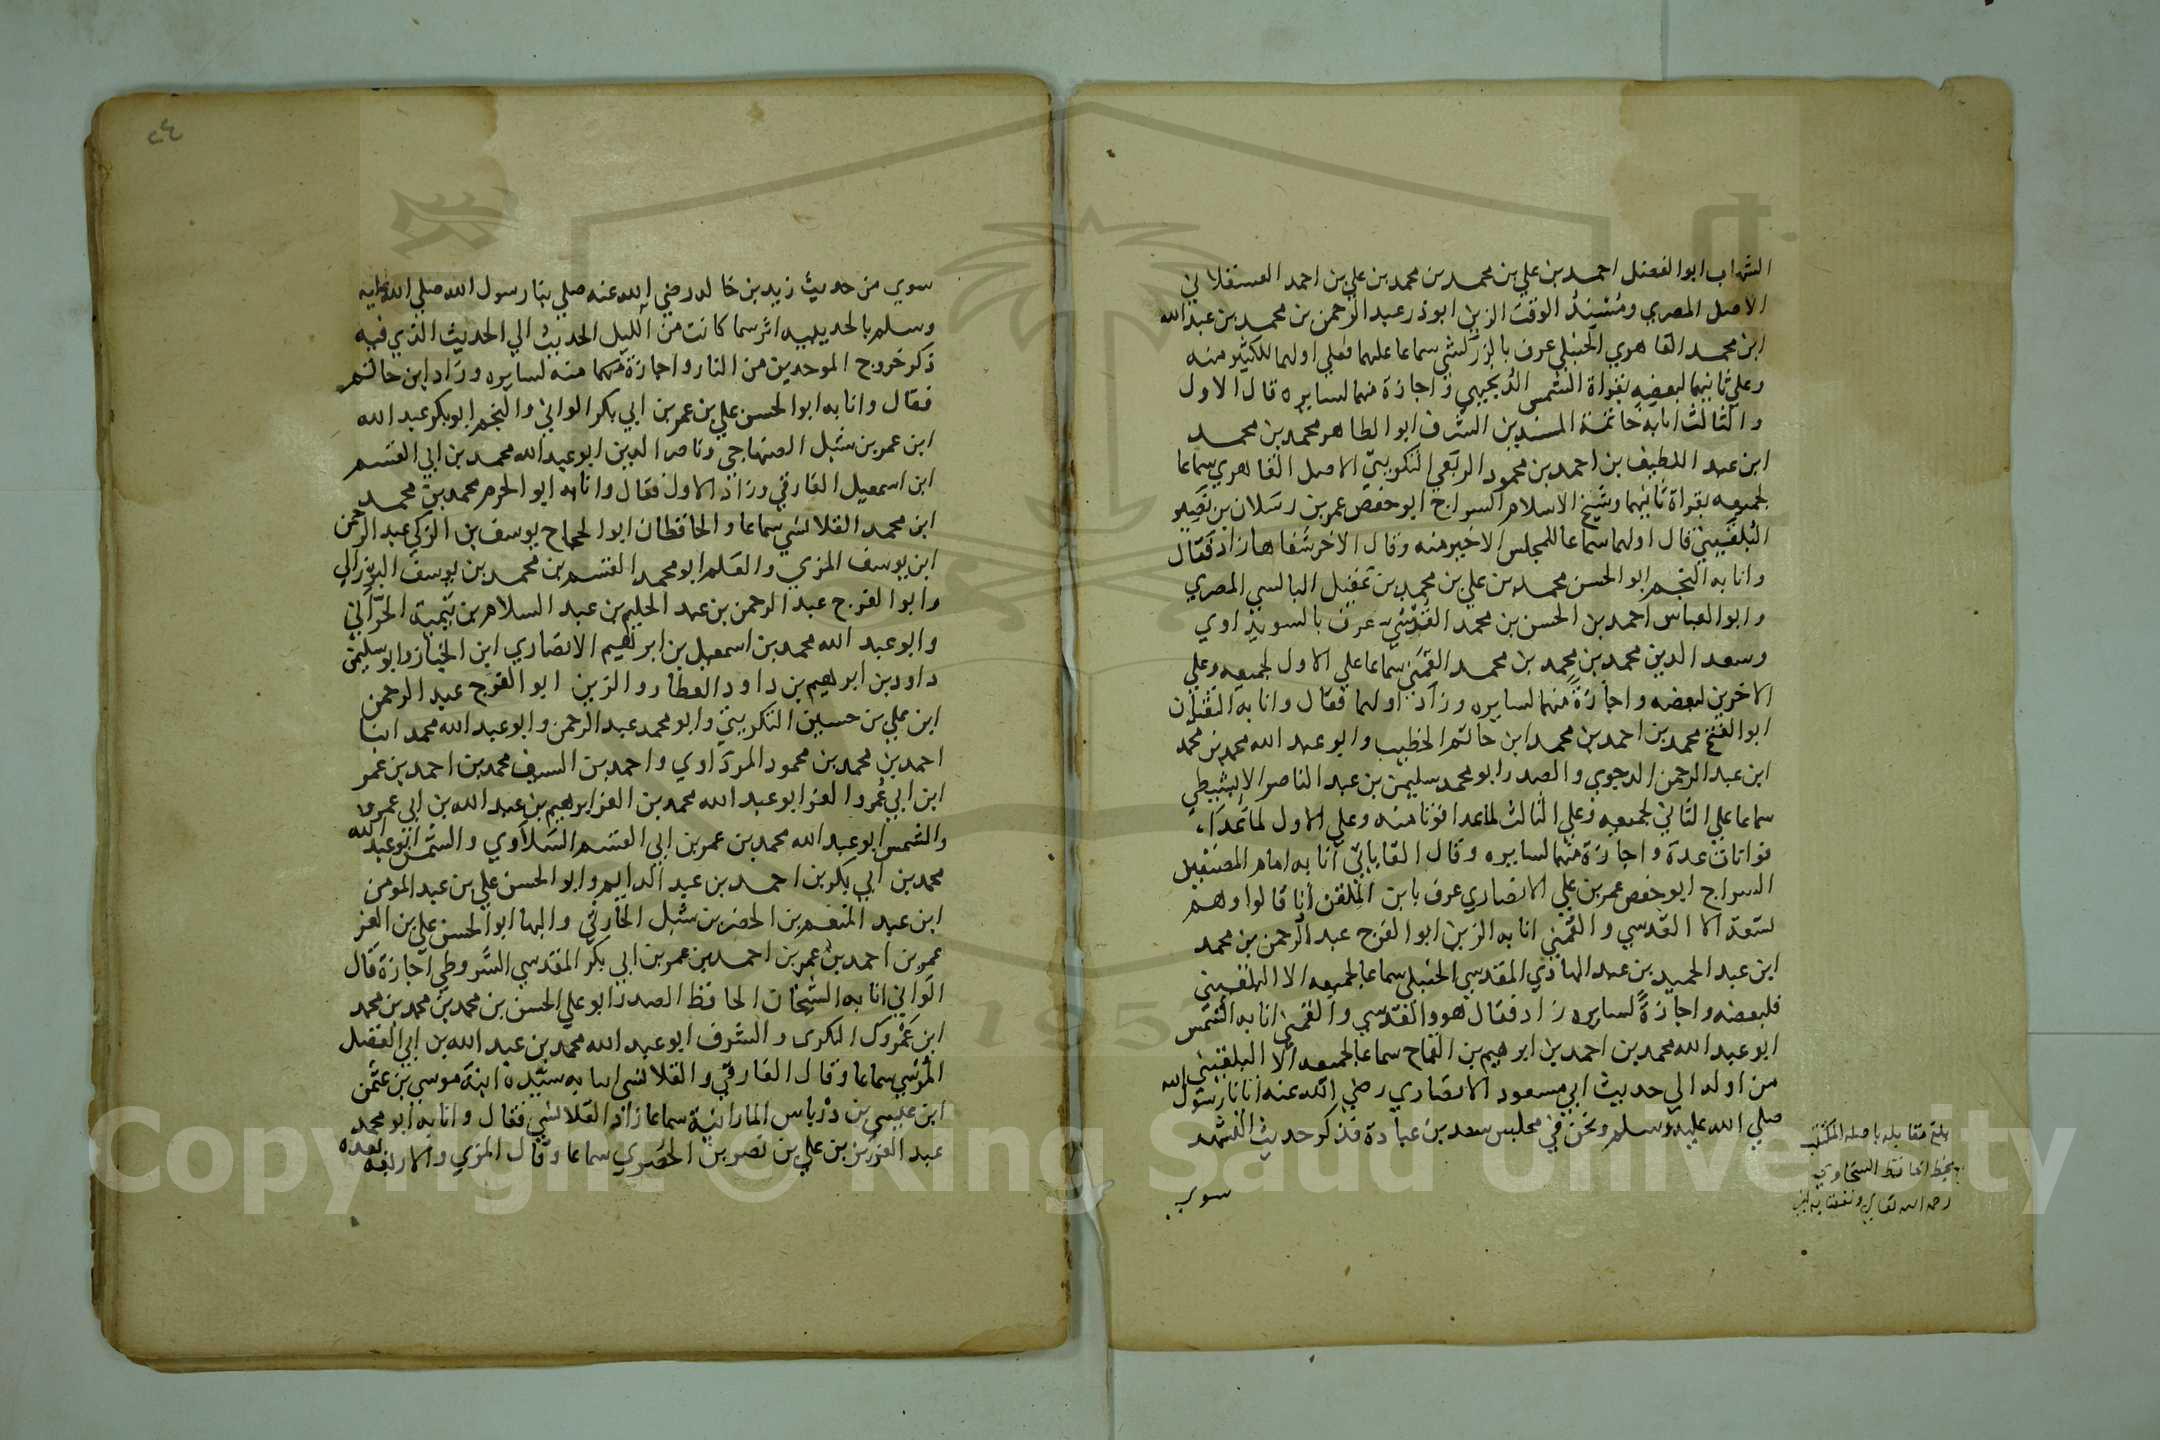 الشهاب ابو الفضل احمد بن علي بن محمد بن محمد بن علي بن احمد العسقلاني
الاصل المصري ومسند الوقت الزين ابو ذر عبد الرحمن بن محمد بن عبد الله
ابن محمد القاهري الحنبلي عرف بالزركشي سماعا عليهما فعلي اولهما للكثير منه
وعلي ثانيهما لبعضه بقراة الشمس الديجيبي واجازة منهما لسايره قال الاول
والثالث انا به خاتمة المسندين الشرف ابو الطاهر محمد بن محمد
ابن عبد اللطيف بن احمد بن محمود الربعي التكريتي الاصل القاهري سماعا
لجميعه بقراة ثانيهما وشيخ الاسلام السراج ابو حفص عمر بن رسلان بن نصير
البلقيني قال اولهما سماعا للمجلس الاخير منه وقال الاخر شفاها زاد فقال
وانا به النجم ابو الحسن محمد بن علي بن محمد بن عقيل البالسي المصري
وابو العباس احمد بن الحسن بن محمد القدسي عرف بالسويداوي
وسعد الدين محمد بن محمد بن محمد القمني سماعا علي الاول لجميعه وعلي
الاخرين لبعضه واجازة منهما لسايره وزاد اولهما فقال وانا به الثقتان
ابو الفتح محمد بن احمد بن محمد ابن حاتم الخطيب وابو عبد الله محمد بن محمد
ابن عبد الرحمن الدجوي والصدر ابو محمد سليمن بن عبد الناصر الابشيطي
سماعا علي الثاني لجميعه وعلي الثالث لما عدا فوتا منه وعلي الاول لما عدا
فواتات عدة واجازة منهما لسايره وقال القاياتي انا به امام المصنفين
السراج ابو حفص عمر بن علي الانصاري عرف بابن الملقن انا قالوا وهم
تسعة الا القدسي والقمني انا به الزين ابو الفرج عبد الرحمن بن محمد
ابن عبد الحميد بن عبد الهادي المقدسي الحنبلي سماعا لجميعه الا البلقيني
فلبعضه واجازة لسايره زاد فقال هو والقدسي والقمني انا به الشمس
ابو عبد الله محمد بن احمد بن ابرهيم بن القماح سماعا لجميعه الا البلقيني
من اوله الي حديث ابي مسعود الانصاري رضي الله عنه اتانا رسول الله
صلي الله عليه وسلم ونحن في مجلس سعد بن عبادة فذكر حديث التشهد
سوي
بلغ مقابله باصله المكتتب
بخط الحافظ السخاوي
رحمه الله تعالي ونفعنا به امين
٢٤
سوي من حديث زيد بن خالد رضي الله عنه صلي بنا رسول الله صلي الله عليه
وسلم بالحديبيه اثر سما كانت من الليل الحديث الي الحديث الذي فيه
ذكر خروج الموحدين من النار واجازة منهما منه لسايره وزاد ابن حاتم
فقال وانا به ابو الحسن علي بن عمر بن ابي بكر الواني والنجم ابو بكر عبد الله
ابن عمر بن شبل الصنهاجي وناصر الدين ابو عبد الله محمد بن ابي القسم
ابن اسمعيل الفارقي وزاد الاول فقال وانا به ابو الحرم محمد بن محمد
ابن محمد القلانسي سماعا والحافظان ابو الحجاج يوسف بن الزكي عبد الرحمن
ابن يوسف المزي والعلم ابو محمد القسم بن محمد بن يوسف البرزالي
وابو الفرج عبد الرحمن بن عبد الحليم بن عبد السلام بن تيمية الحراني
وابو عبد الله محمد بن اسمعيل بن ابرهيم الانصاري ابن الخباز وابو سليمن
داود بن ابرهيم بن داود العطار والزين ابو الفرج عبد الرحمن
ابن علي بن حسين التكريتي وابو محمد عبد الرحمن وابو عبد الله محمد ابنا
احمد بن محمد بن محمود المرداوي واحمد بن السيف محمد بن احمد بن عمر
ابن ابي عمر والعز ابو عبد الله محمد بن العز ابرهيم بن عبد الله بن ابي عمر
والشمس ابو عبد الله محمد بن عمر بن ابي القسم السلاوي والشمس ابو عبد الله
محمد بن ابي بكر بن احمد بن عبد الدايم وابو الحسن علي بن عبد المومن
ابن عبد المنعم بن الخضر بن شبل الحارثي والبها ابو الحسن علي بن العز
عمر بن احمد بن عمر بن احمد بن عمر بن ابي بكر المقدسي الشروطي اجازة قال
الواني انا به الشيخان الحافظ الصدر ابو علي الحسن بن محمد بن محمد بن محمد
ابن عمروك البكري والشرف ابو عبد الله محمد بن عبد الله بن ابي الفضل
المرسي سماعا وقال الفارقي والقلانسي انا به سيدة ابنة موسي بن عثمن
ابن عيسي بن درباس المارانية سماعا زاد القلانسي فقال وانا به ابو محمد
عبد العزيز بن علي بن نصر بن الحصري سماعا وقال المزي والاربعة بعده